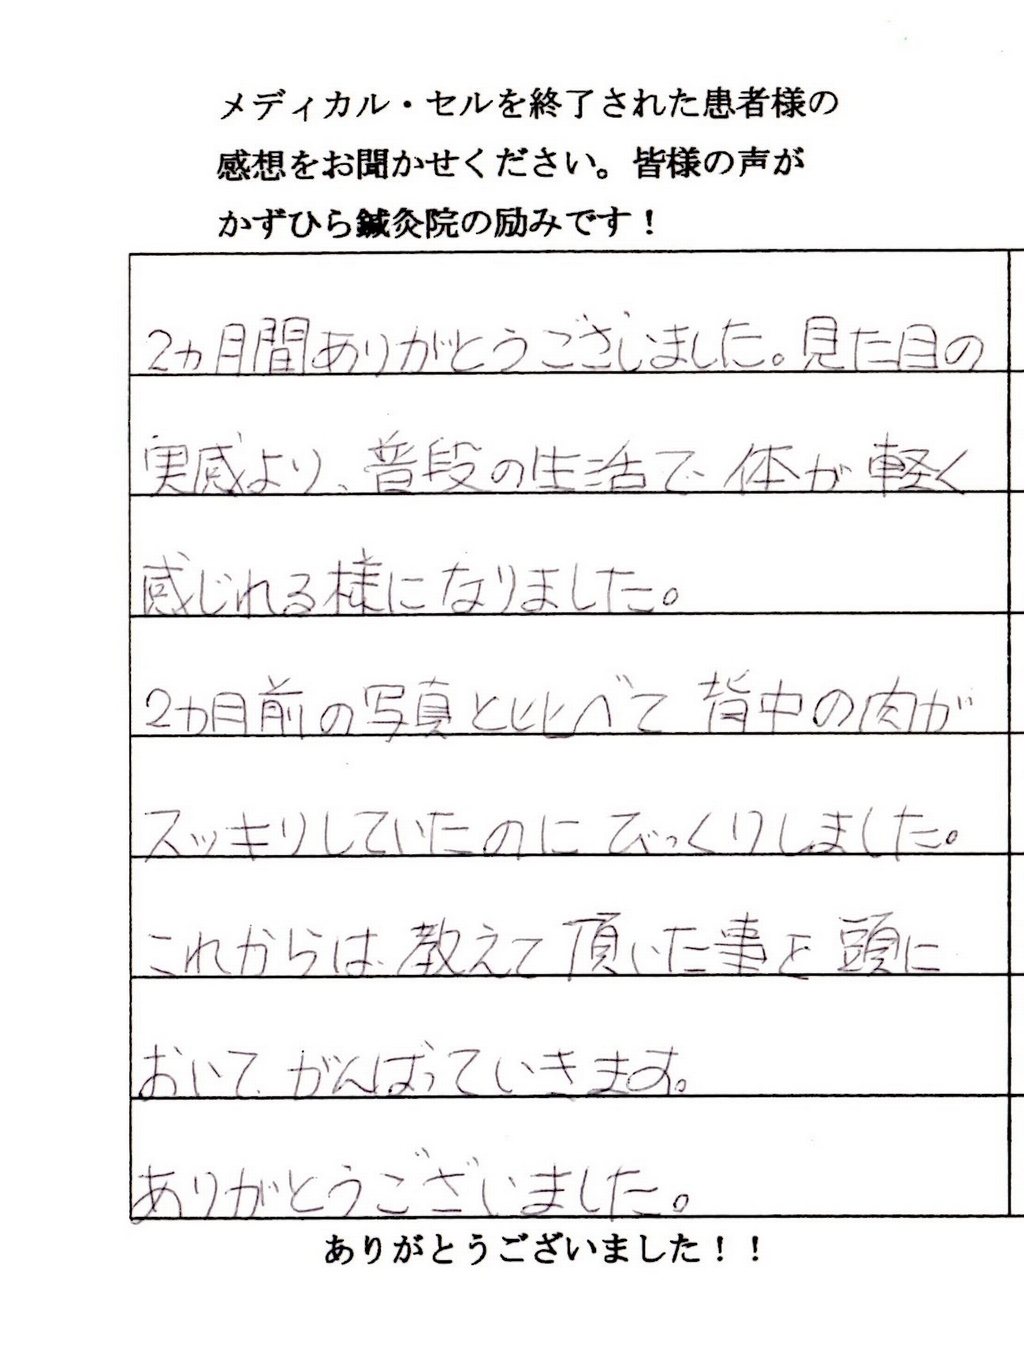 メディカル・セルを終了された患者様の
感想をお聞かせください。皆様の声が
かずひら鍼灸院の励みです！
2ヵ月間ありがとうございました。見た目の
実感より、普段の生活で、体が軽く
感じれる様になりました。
2カ月前の写真と比べて背中の肉が
スッキリしていたのにびっくりしました。
これからは、教えて頂いた事を頭に
おいて、がんばっていきます。
ありがとうございました。
ありがとうございました！！